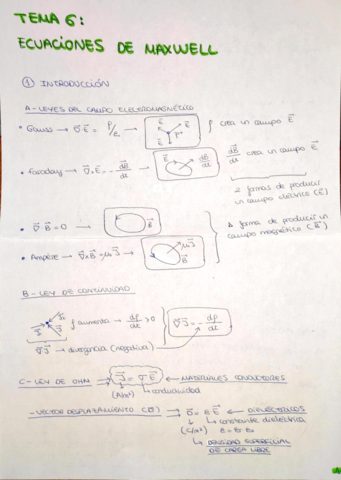 TEMA 6:
ECUACIONES DE MAXWELL
① INTRODUCCIÓN
A - LEYES DEL CAMPO ELECTROMAGNÉTICO
• Gauss → ∇⃗·E⃗ = ρ/ε₀ → E⃗ E⃗ E⃗ ρ⁺ ρ crea un campo E⃗
• Faraday → ∇⃗×E⃗ = -dB⃗/dt → E⃗ dB⃗/dt dB⃗/dt crea un campo E⃗
2 formas de producir
un campo eléctrico (E⃗)
• ∇⃗·B⃗ = 0 → B⃗
1 forma de producir un
campo magnético (B⃗)
• Ampère → ∇⃗×B⃗ = μ₀J⃗ → μ₀J⃗ B⃗
B - LEY DE CONTINUIDAD
J⃗ J⃗ J⃗ ρ aumenta → dρ/dt > 0
∇⃗·J⃗ = -dρ/dt
∇⃗·J⃗ → divergencia (negativa)
C - LEY DE OHM → J⃗ = σE⃗ ← MATERIALES CONDUCTORES
(A/m²) conductividad
- VECTOR DESPLAZAMIENTO (D⃗) → D⃗ = εE⃗ ← DIELÉCTRICOS
(C/m²) constante dieléctrica
DENSIDAD SUPERFICIAL
DE CARGA LIBRE